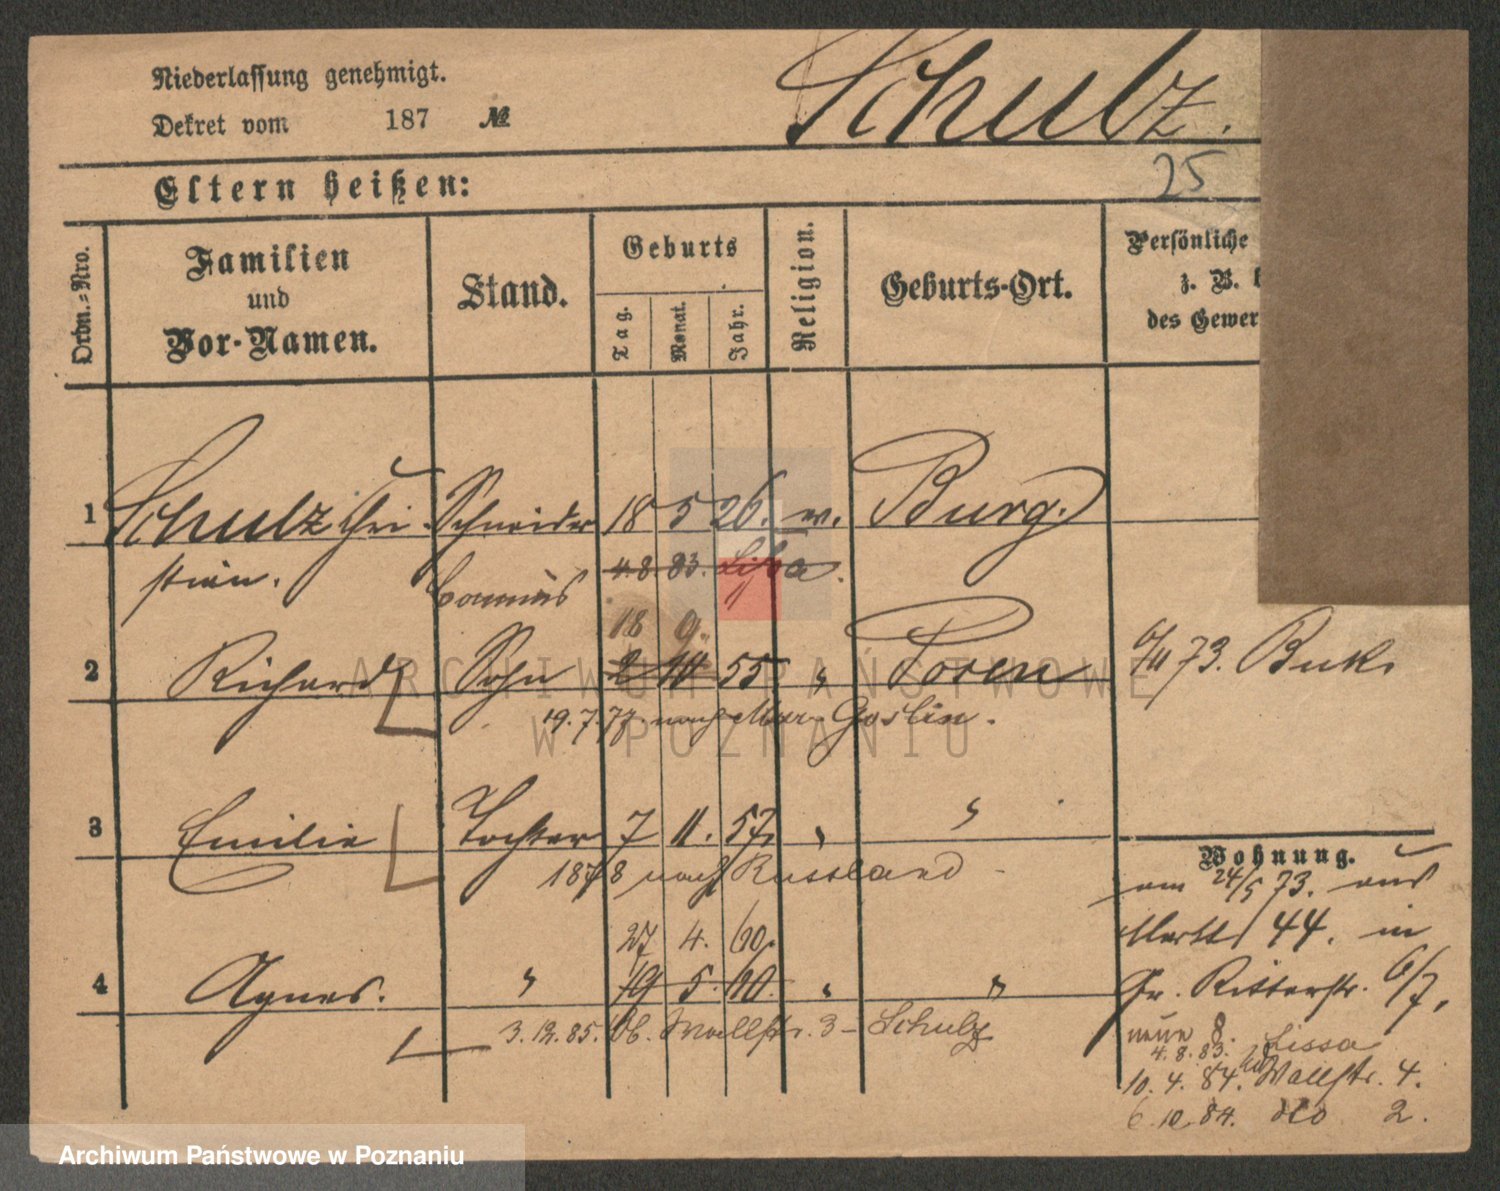 Niederlassung genehmigt.
Dekret vom 187 №
Schulz.
25
Eltern heißen:
Ordn.=Nro.
Familien
und
Vor-Namen.
Stand.
Geburts
Tag.
Monat.
Jahr.
Religion.
Geburts-Ort.
Persönliche
z. B.
des Gewer
1 Schulz Chri- Schneider 18 5 26. ev. Burg.
stian.
4. 8. 83. Lissa.
18 9.
2 Richard Sohn 2 10 55 " Posen 6/11 73. Buk.
19. 7. 77. nach Mur. Goslin.
3 Emilie Tochter 7 11. 57. " "
1878 nach Russland
27 4. 60.
4 Agnes. " 19 5. 60. " "
3. 12. 85. Ob. Wallstr. 3 - Schulz
Wohnung.
am 24/5 73. aus
Markt 44. in
Gr. Ritterstr. 6/7.
neue 8.
4. 8. 83. Lissa
10. 4. 84. Wallstr. 4.
6. 10. 84. dto 2.
ARCHIWUM PAŃSTWOWE
W POZNANIU
Archiwum Państwowe w Poznaniu